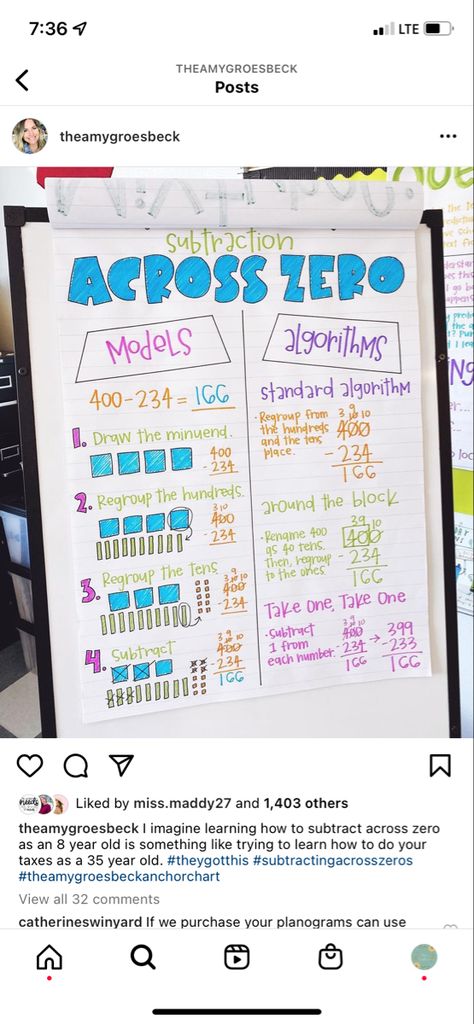 7:36
LTE
THEAMYGROESBECK
Posts
theamygroesbeck
subtraction
ACROSS ZERO
Models
400-234 = 166
1. Draw the minuend.
400
- 234
2. Regroup the hundreds.
3 10
400
- 234
3. Regroup the Tens
9
3 10 10
400
- 234
4. Subtract
9
3 10 10
400
- 234
166
algorithms
standard algorithm
• Regroup from
the hundreds
and the tens
place.
9
3 10 10
400
- 234
166
around the block
• Rename 400
as 40 tens.
Then, regroup
to the ones.
39 10
400
- 234
166
Take One, Take One
• Subtract
1 from
each number.
9
3 10 10
400
- 234
166
→
399
- 233
166
Liked by miss.maddy27 and 1,403 others
theamygroesbeck I imagine learning how to subtract across zero
as an 8 year old is something like trying to learn how to do your
taxes as a 35 year old. #theygotthis #subtractingacrosszeros
#theamygroesbeckanchorchart
View all 32 comments
catherineswinyard If we purchase your planograms can use